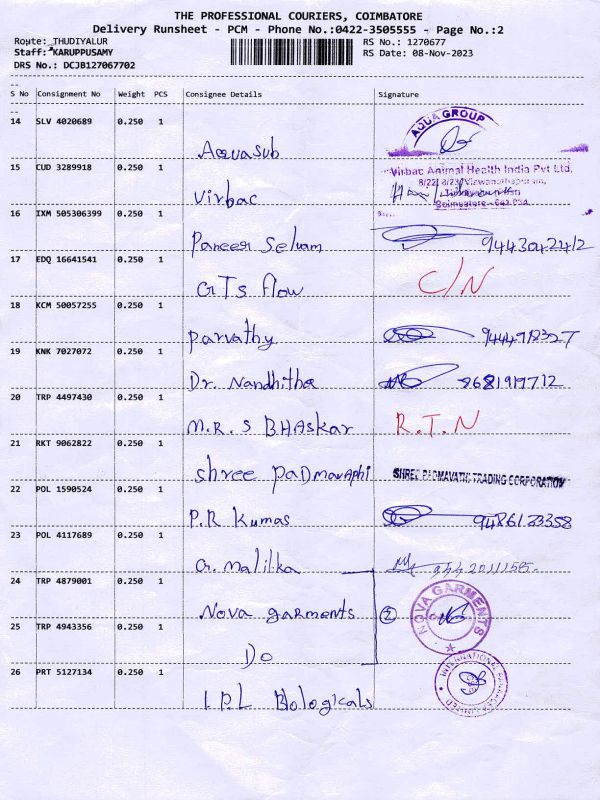 THE PROFESSIONAL COURIERS, COIMBATORE
Delivery Runsheet - PCM - Phone No.:0422-3505555 - Page No.:2
Route: THUDIYALUR RS No.: 1270677
Staff: KARUPPUSAMY RS Date: 08-Nov-2023
DRS No.: DCJB127067702
S No Consignment No Weight PCS Consignee Details Signature
14 SLV 4020689 0.250 1 Aquasub AQUA GROUP
15 CUD 3289918 0.250 1 Virbac Virbac Animal Health India Pvt Ltd,
Coimbatore
16 IXM 505306399 0.250 1 Paneer Selvam 9443042412
17 EDQ 16641541 0.250 1 GTs flow C/N
18 KCM 50057255 0.250 1 Parvathy
19 KNK 7027072 0.250 1 Dr. Nandhitha
20 TRP 4497430 0.250 1 M.R.S BHAskar R.T.N
21 RKT 9062822 0.250 1 shree PADmavaphi SHREE PADMAVATHI TRADING CORPORATION
22 POL 1590524 0.250 1 P.R Kumas
23 POL 4117689 0.250 1 G. Malilka
24 TRP 4879001 0.250 1 Nova garments ② NOVA GARMENTS
25 TRP 4943356 0.250 1 Do
26 PRT 5127134 0.250 1 I.P.L Biologicals INTERNATIONAL